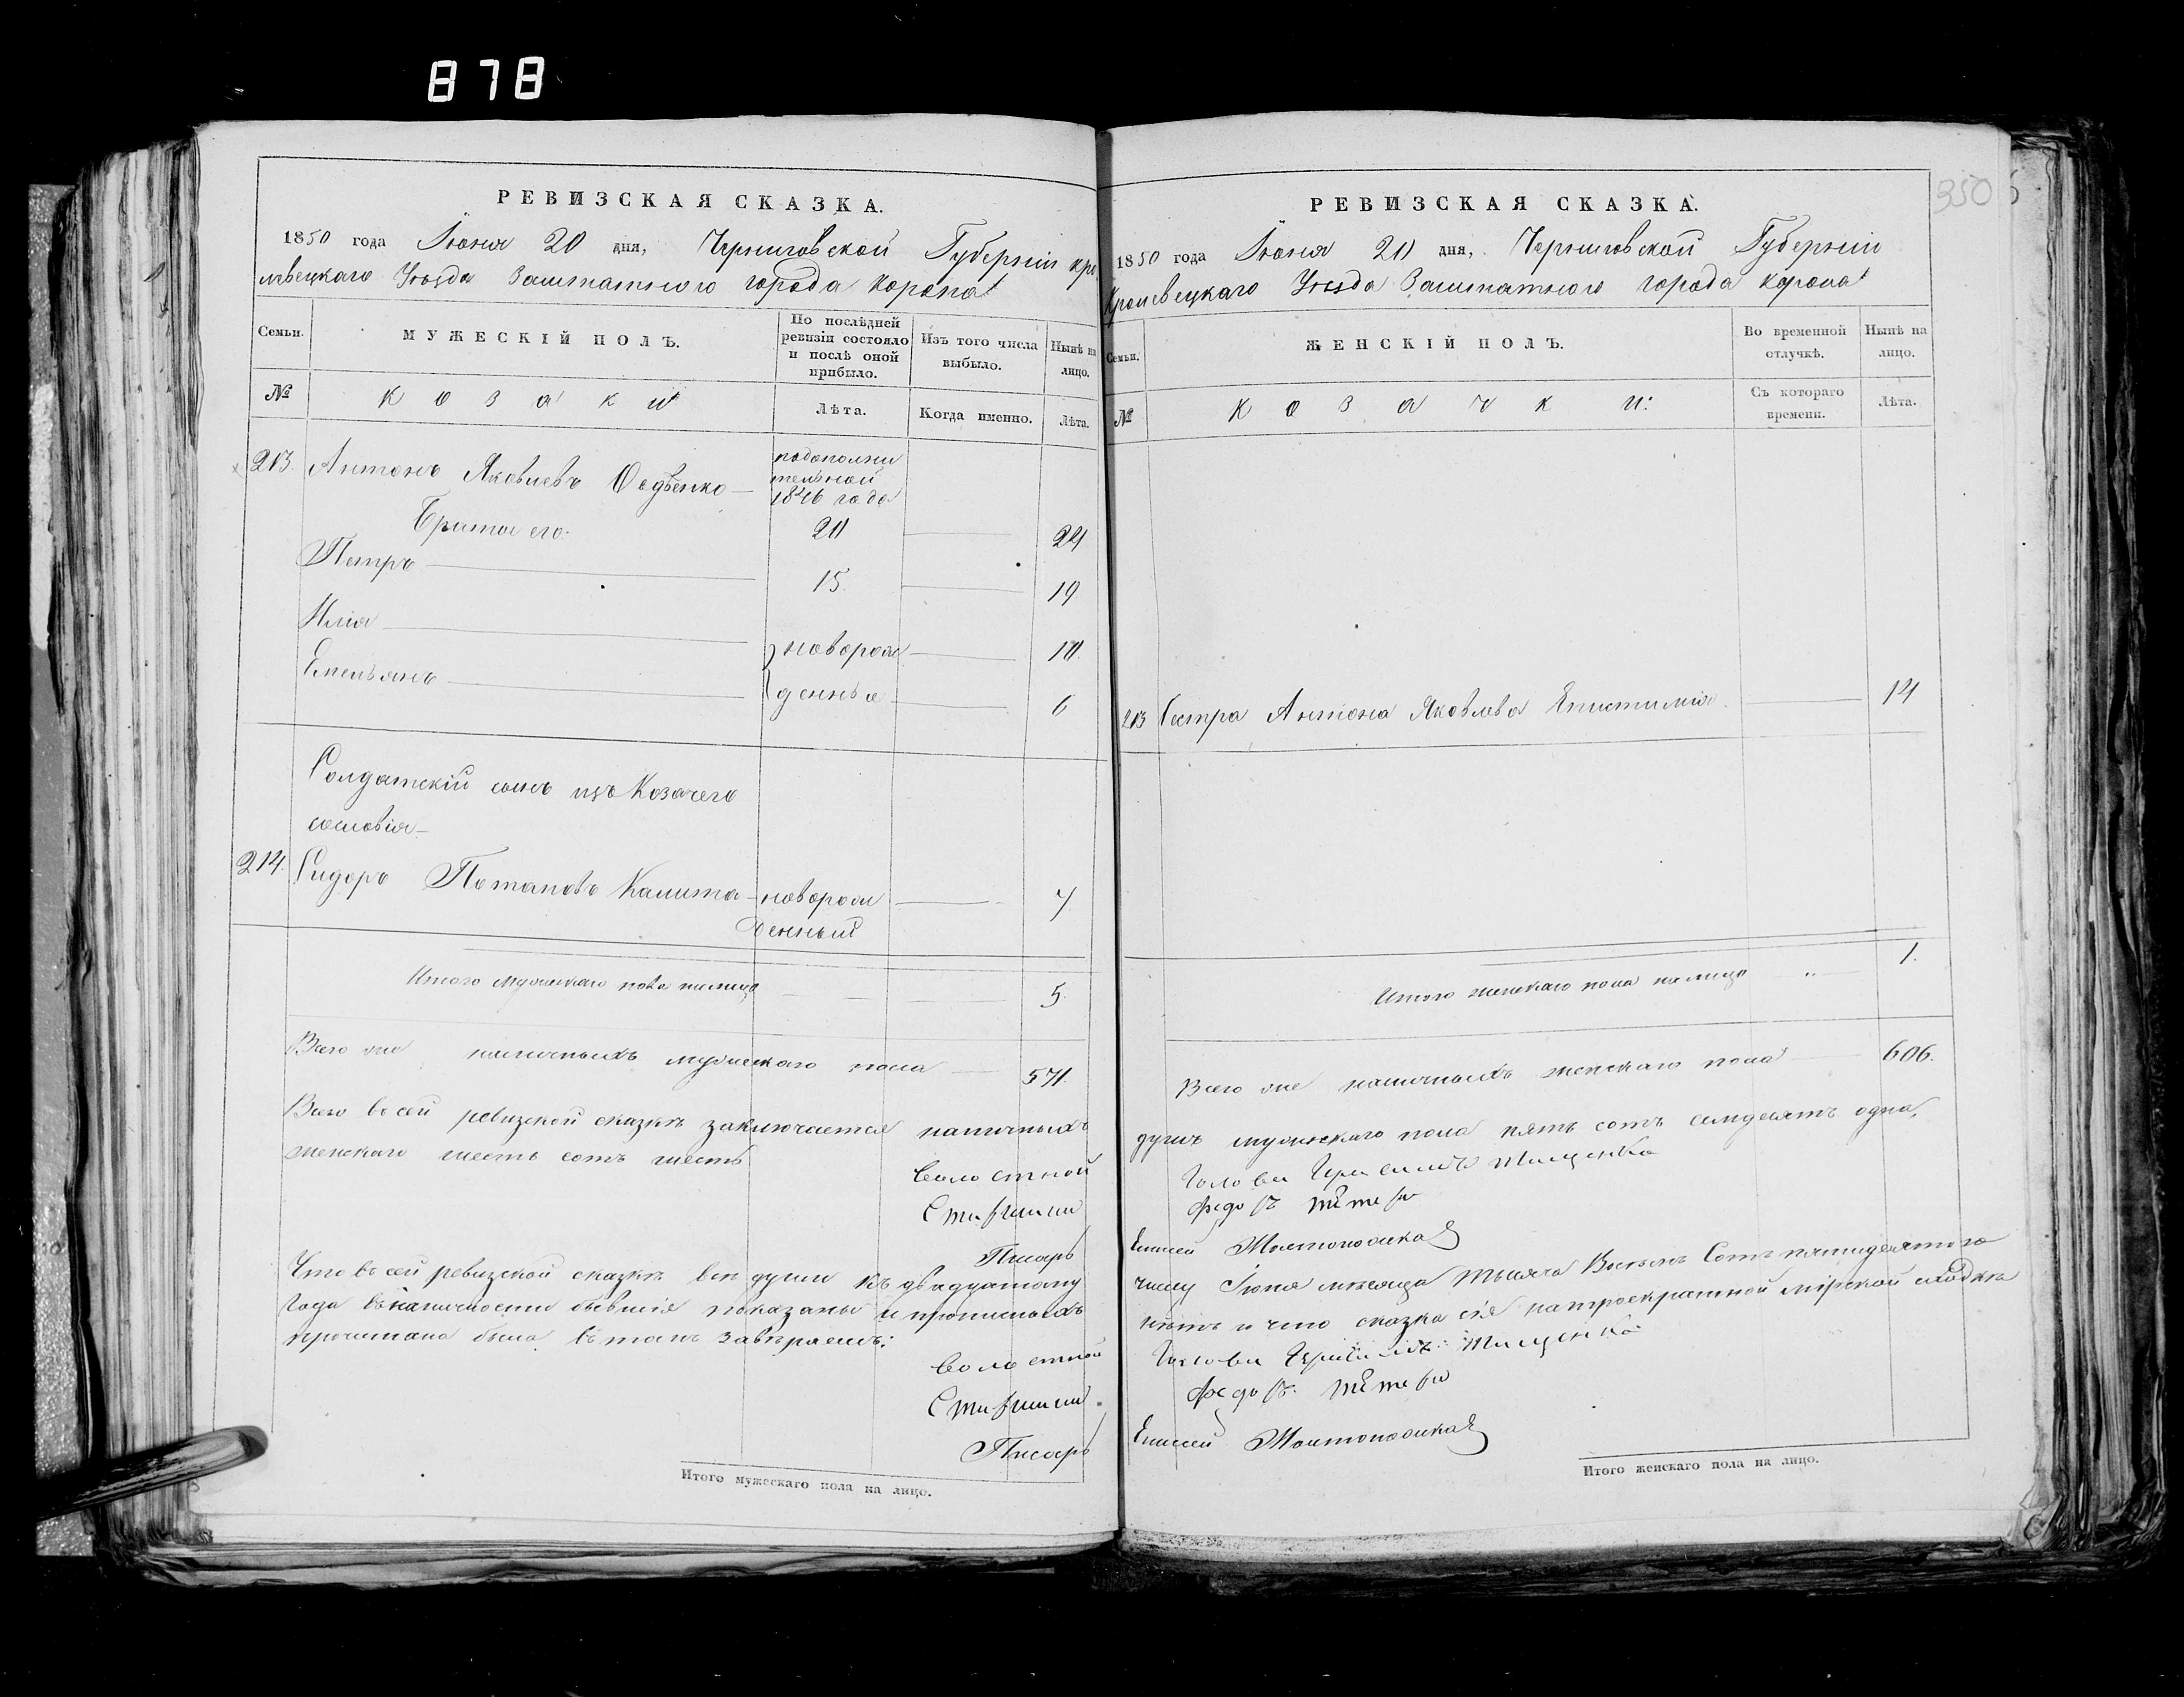 878
РЕВИЗСКАЯ СКАЗКА.
1850 года Іюня 20 дня, Черниговской Губерніи кро
левецкаго Уѣзда Заштатного города Коропа
Семьи.
МУЖЕСКІЙ ПОЛЪ.
По послѣдней ревизіи состояло и послѣ оной прибыло.
Изъ того числа выбыло.
Нынѣ на лицо.
№
Козаки
Лѣта.
Когда именно.
Лѣта.
213. Антонъ Яковлевъ
подополни
тельной
1846 года
20 24
Братья его:
Петръ 15. 19.
Илія 10.
новорож
Емельянъ
денные 6
Солдатскій сынъ изъ Козачего
сословія
214. Сидоръ Потаповъ Калита новорож
денный 7
Итого мужескаго пола налицо 5.
Всего же наличныхъ мужескаго пола 571.
Всего въ сей ревизской сказкѣ заключается наличныхъ
женскаго шесть сотъ шесть
Волостной
Старшина
Писарь
Что въ сей ревизской сказкѣ всѣ души къ двадцатому
Года въ наличности бывшія показаны и прописныхъ
прочитана была въ томъ завѣряемъ:
Волостной
Старшина
Писарь
Итого мужескаго пола на лицо.
350
РЕВИЗСКАЯ СКАЗКА.
1850 года Іюня 20 дня, Черниговской Губерніи
Кролевецкаго Уѣзда Заштатного города Коропа
Семьи.
ЖЕНСКІЙ ПОЛЪ.
Во временной отлучкѣ.
Нынѣ на лицо.
№
Козачки:
Съ котораго времени.
Лѣта.
213 Сестра Антона Яковлева Епистимія 14
Итого женскаго пола налицо 1.
Всего же наличныхъ женскаго пола 606.
душъ мужескаго пола пять сотъ семдесятъ одна,
Голова Герасимъ Тищенко
Федоръ
Елисей
числу Іюня мѣсяца тысяча Восемь Сотъ пятидесятого
нѣтъ и что сказка сія на троекратной мірской сходкѣ
Голова Герасимъ Тищенко
Федоръ
Елисей
Итого женскаго пола на лицо.